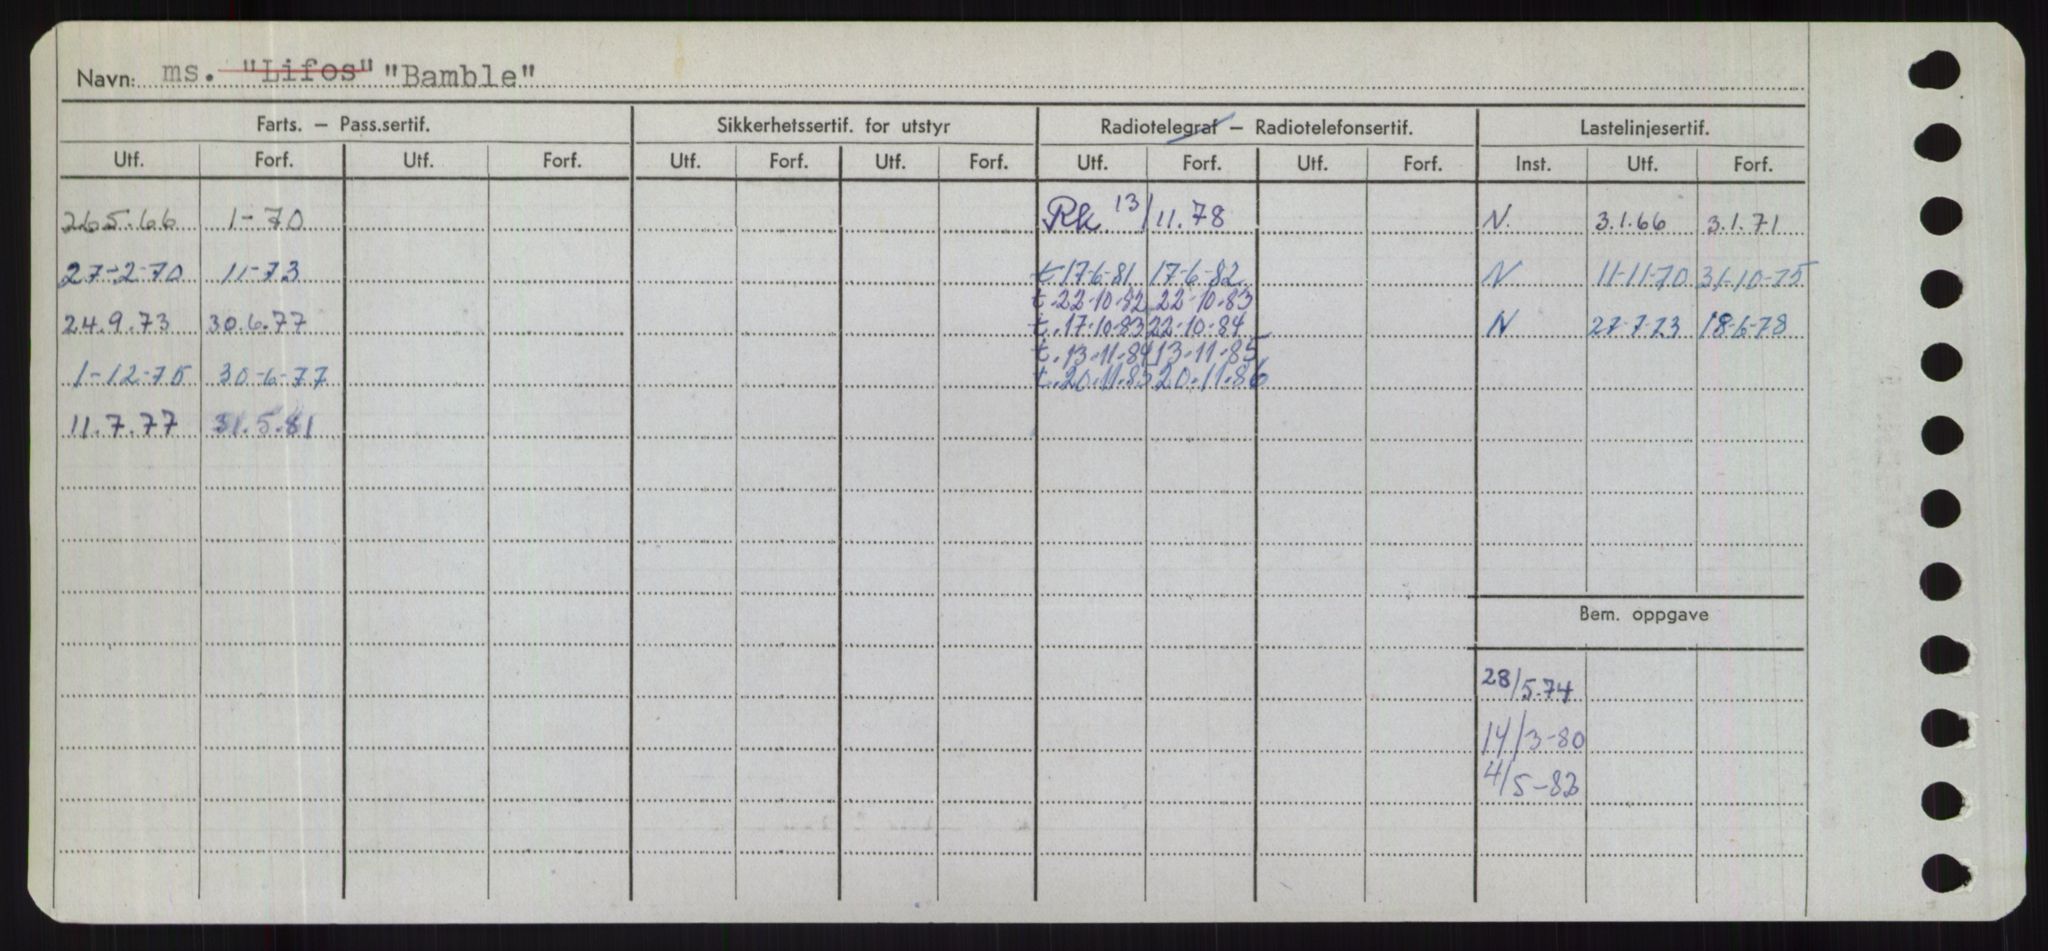 Navn: ms. "Lifos" "Bamble"
Farts. – Pass.sertif. Sikkerhetssertif. for utstyr Radiotelegraf – Radiotelefonsertif. Lastelinjesertif.
Utf. Forf. Utf. Forf. Utf. Forf. Utf. Forf. Utf. Forf. Utf. Forf. Inst. Utf. Forf.
26.5.66 1-70 Rk 13/11.78 N. 3.1.66 3.1.71
27-2-70 11-73 t.17-6-81 17-6-82 N 11-11-70 31-10-75
t.22-10-82 22-10-83
24.9.73 30.6.77 t.17-10-83 22-10-84 N 27-7-73 18-6-78
t.13-11-84 13-11-85
1-12-75 30-6-77 t.20.11.85 20.11.86
11.7.77 31.5.81
Bem. oppgave
28/5.74
14/3-80
4/5-83